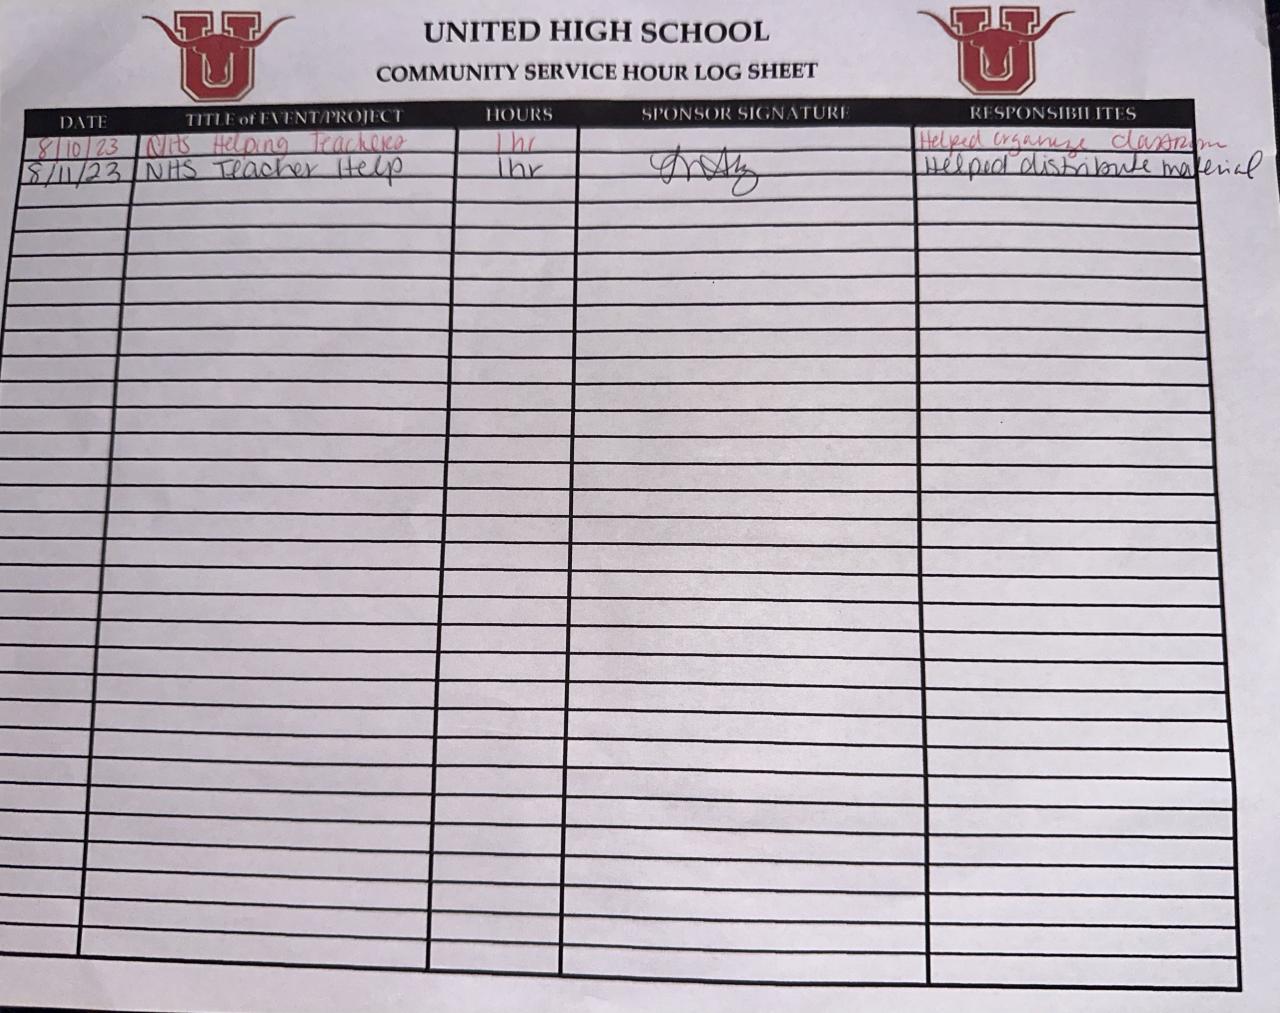 UNITED HIGH SCHOOL
COMMUNITY SERVICE HOUR LOG SHEET
DATE TITLE of EVENT/PROJECT HOURS SPONSOR SIGNATURE RESPONSIBILITES
8/10/23 NHS Helping Teachers 1 hr Helped organize classroom
8/11/23 NHS Teacher Help 1hr Helped distribute material